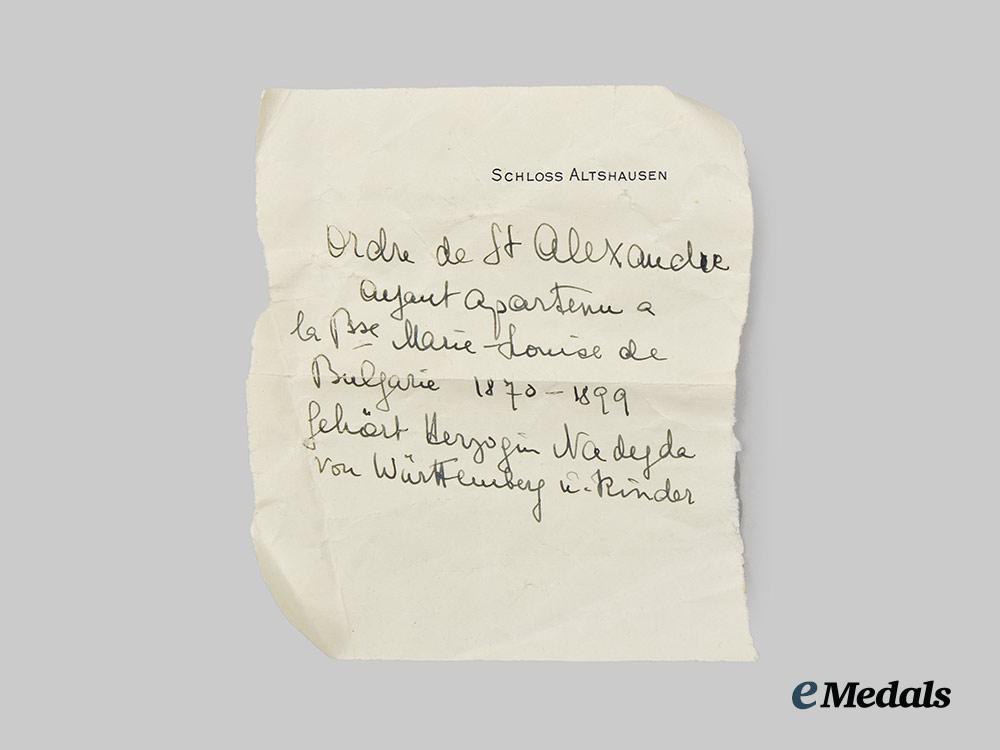 SCHLOSS ALTSHAUSEN
Ordre de St Alexandre
ayant apartenu a
la Psse Marie-Louise de
Bulgarie 1870-1899
gehört Herzogin Nadejda
von Württemberg u. Kinder
eMedals